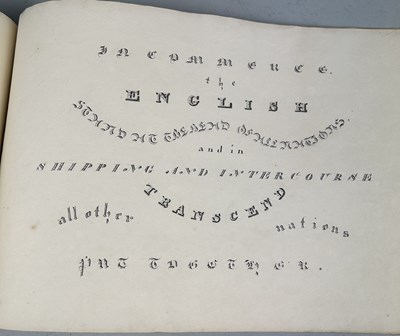 IN COMMERCE.
the
ENGLISH
STAND AT THE HEAD OF ALL NATIONS.
and in
SHIPPING AND INTERCOURSE
TRANSCEND
all other nations
PUT TOGETHER.